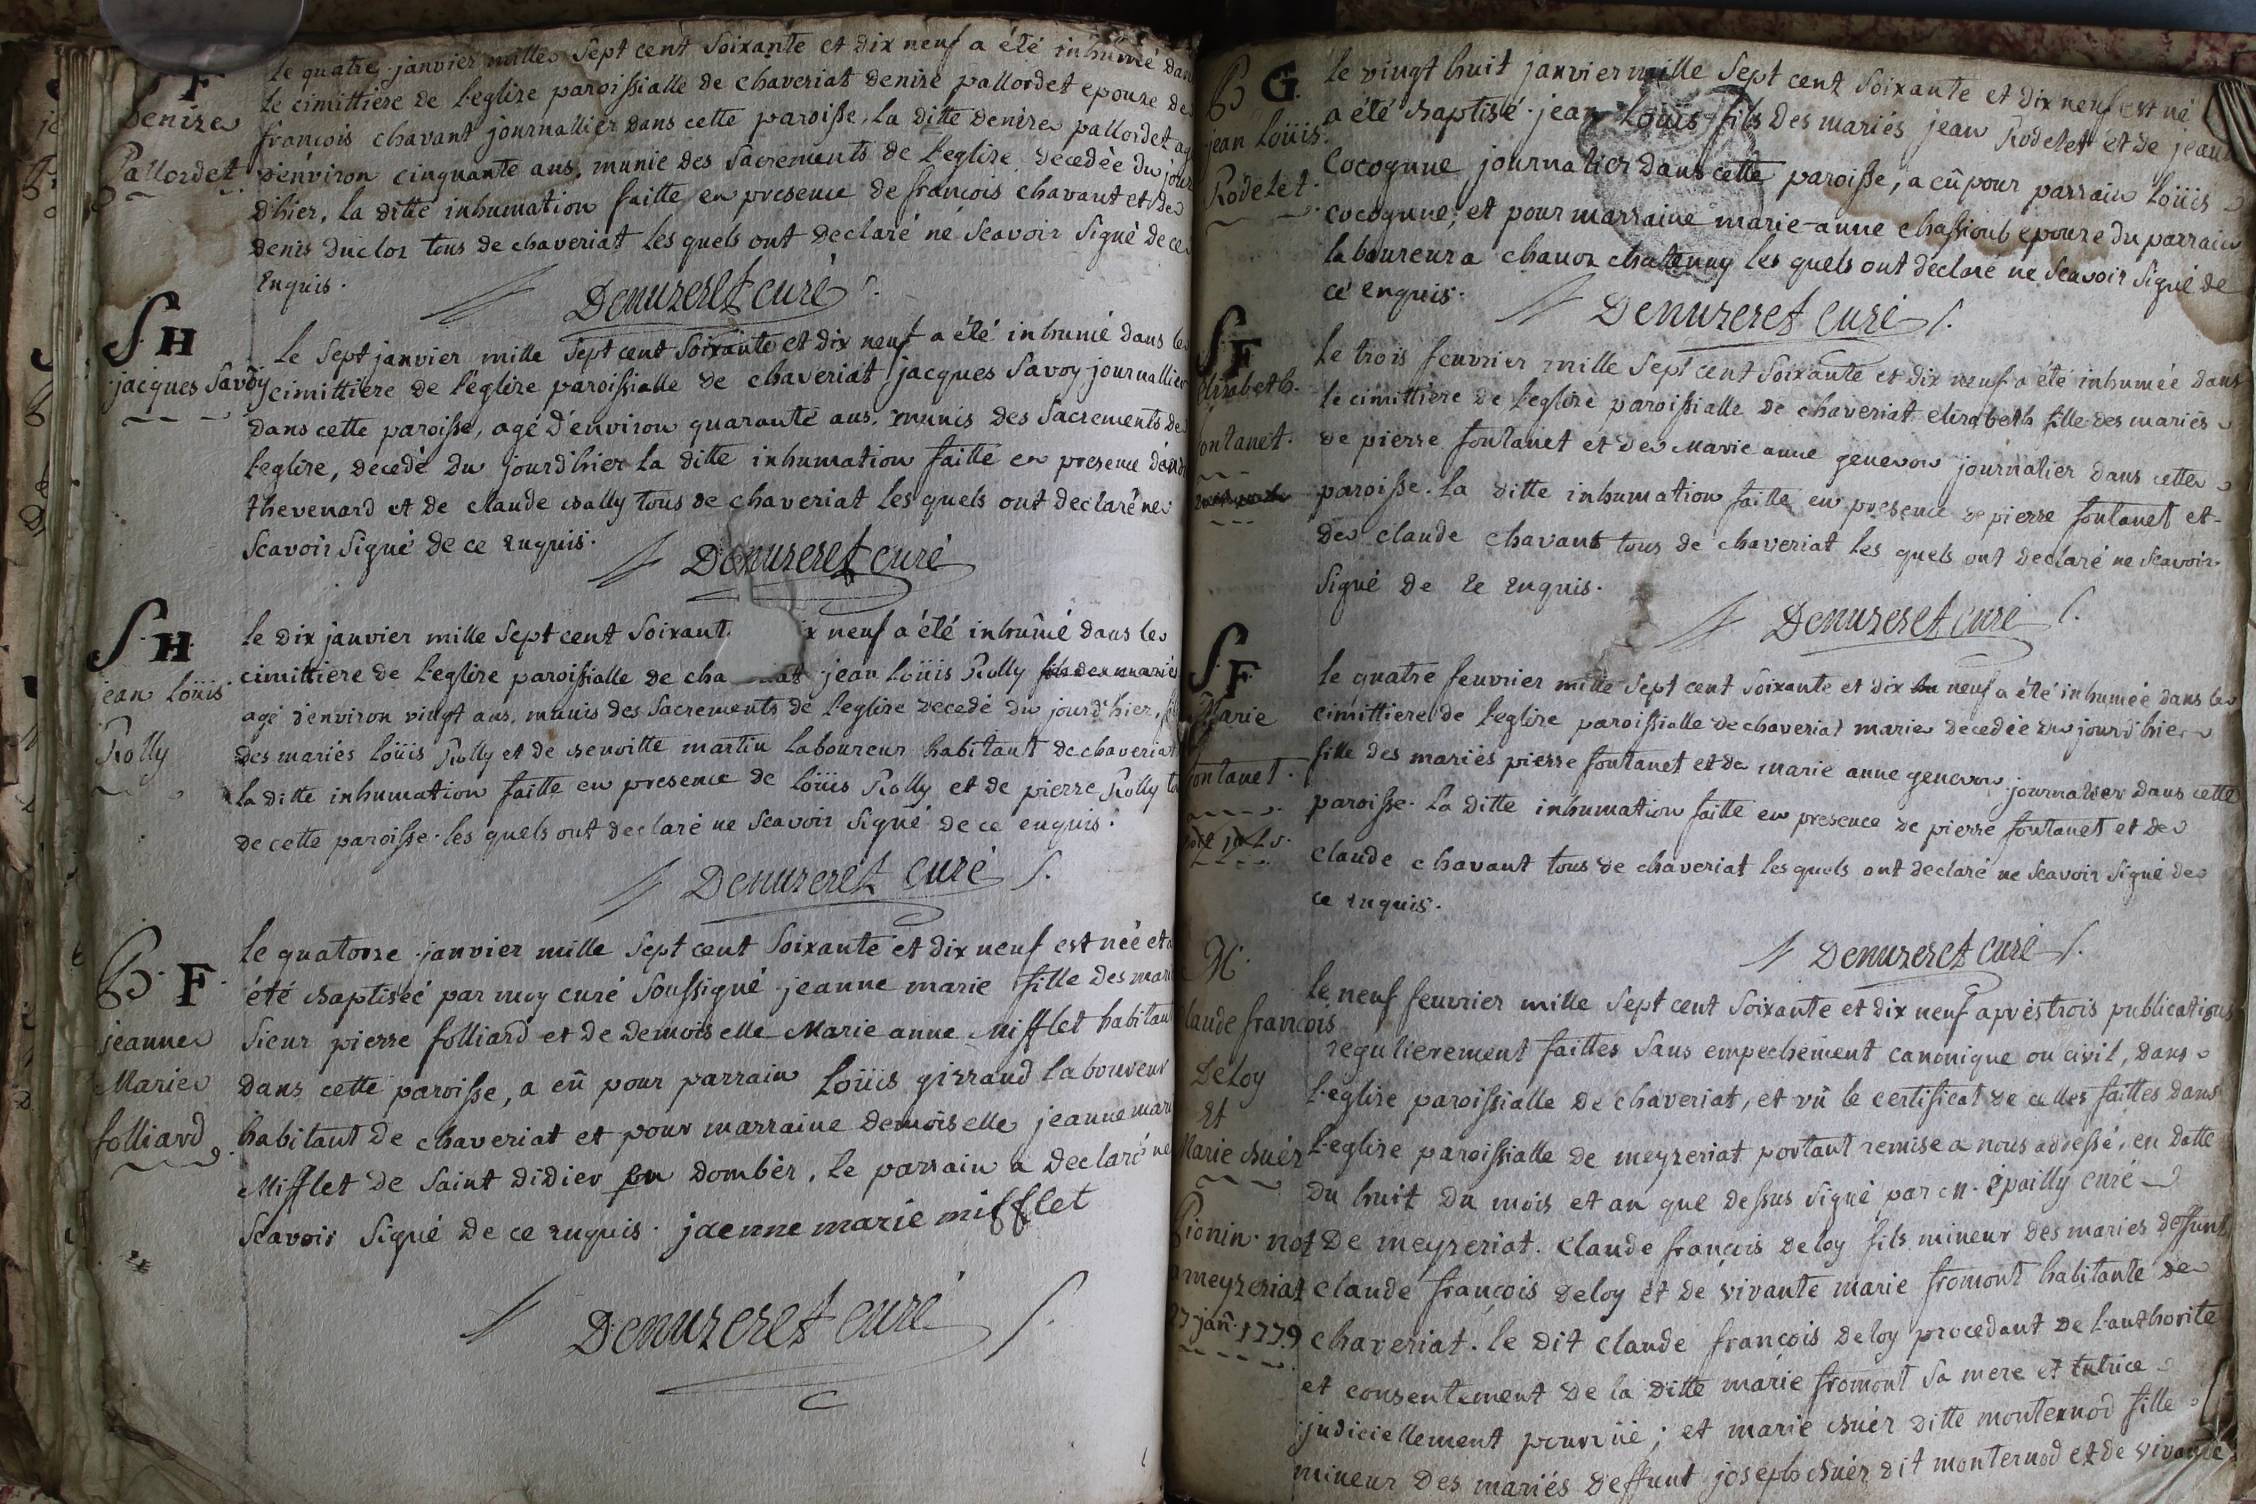 F
Denize
Pallordet
Le quatre janvier mille Sept cent Soixante et dix neuf a été inhumé dan
Le cimittiere de l'eglize paroissialle de chaveriat denize pallordet epouze de
françois chavant journallier dans cette paroisse, la ditte denize pallordet ag
d'environ cinquante ans, munie des Sacrements de l'eglize decedée du jour
d'hier, la ditte inhumation faitte en presence de françois chavant et de
denis duclos tous de chaveriat les quels ont declaré ne Scavoir Signé de ce
Enquis.
Demuzeret curé
S. H
jacques Savoy
Le Sept janvier mille Sept cent Soixante et dix neuf a été inhumé dans le
cimittiere de l'églize paroissialle de chaveriat jacques Savoy journallier
dans cette paroisse, agé d'environ quarante ans, munis des Sacrements de
l'eglize, decedé du jourd'hier la ditte inhumation faitte en presence
thevenard et de claude bally tous de chaveriat les quels ont declaré ne
Scavoir Signé de ce enquis.
Demuzeret curé
S. H
jean Loüis
Rolly
Le dix janvier mille Sept cent Soixant ix neuf a été inhumé dans le
cimittiere de l'eglize paroissialle de cha iat jean Loüis Rolly fils des mariés
agé d'environ vingt ans, munis des Sacrements de l'eglize decedé du jourd'hier,
des mariés Loüis Rolly et de benoitte martin Laboureur habitant de chaveriat
la ditte inhumation faitte en presence de Loüis Rolly et de pierre Rolly to
de cette paroisse. les quels ont declaré ne Scavoir Signé de ce enquis.
Demuzeret curé
B. F
jeanne
Marie
folliard
Le quatorze janvier mille Sept cent Soixante et dix neuf est née et a
été baptiseé par moy curé Soussigné jeanne marie fille des mar
Sieur pierre folliard et de demoiselle Marie anne Mifflet habitan
dans cette paroisse, a eû pour parrain Loüis girraud Laboureur
habitant de chaveriat et pour marraine demoiselle jeanne mari
Mifflet de Saint didier en dombes. Le parrain a declaré ne
Scavoir Signé de ce enquis. jaenne marie mifflet
Demuzeret curé
B G.
jean Loüis
Rodetet
Le vingt huit janvier mille Sept cent Soixante et dix neuf est né
a été baptisé jean Loüis fils des mariés jean Rodetet et de jeanne
Cocognne journalier dans cette paroisse, a eû pour parrain Loüis
cocognne; et pour marraine marie-anne chassoub epouze du parrain
laboureur a chanoz chatenay les quels ont declaré ne Scavoir Signé de
ce enquis.
Demuzeret curé
S. F
Elizabeth
fontanet.
Le trois feuvrier mille Sept cent Soixante et dix neuf a été inhumée dans
le cimittiere de l'eglize paroissialle de chaveriat elizabeth fille des mariés
de pierre fontanet et de Marie anne genevon journalier dans cette
paroisse. La ditte inhumation faitte en presence de pierre fontanet et
de claude chavant tous de chaveriat les quels ont declaré ne Scavoir
Signé de ce enquis.
Demuzeret curé
S. F
Marie
fontanet.
Le quatre feuvrier mille Sept cent Soixante et dix neuf a été inhumée dans le
cimittiere de l'eglize paroissialle de chaveriat marie decedée du jourd'hier
fille des mariés pierre fontanet et de marie anne genevon journalier dans cette
paroisse. La ditte inhumation faitte en presence de pierre fontanet et de
Claude chavant tous de chaveriat les quels ont declaré ne Scavoir Signé de
ce enquis.
Demuzeret curé
M.
Claude françois
Deloy
Et
Marie buér
Pionin. not
a meyzeriat
27 jañ. 1779
Le neuf feuvrier mille Sept cent Soixante et dix neuf après trois publications
regulierement faittes Sans empechement canonique ou civil, dans
l'eglize paroissialle de chaveriat, et vû le certificat de celles faittes dans
l'eglize paroissialle de meyzeriat portant remise a nous adressé, en datte
du huit du mois et an que dessus Signé par m. épailly curé
De meyzeriat. Claude françois deloy fils mineur des mariés deffunt
Claude françois deloy et de vivante marie fromont habitante de
chaveriat. le dit claude françois deloy procedant de l'authorité
et consentement de la ditte marie fromont Sa mere et tutrice
judiciellement pourvüe; et marie buér ditte monternod fille
mineur des mariés deffunt joseph buér dit monternod et de vivante